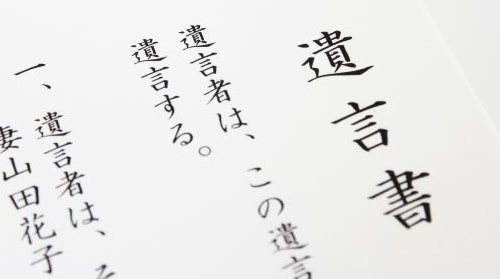 遺言書
遺言者は、この遺言
遺言する。
一、遺言者は、そ
妻山田花子